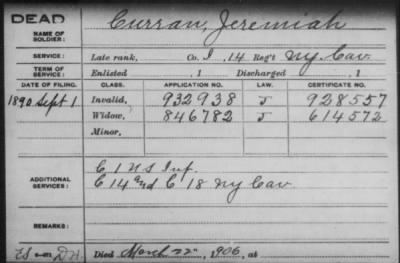 DEAD
NAME OF SOLDIER:
Curran, Jeremiah
SERVICE:
Late rank, Co. I, 14 Reg't NY Cav.
TERM OF SERVICE:
Enlisted , 1 Discharged , 1
DATE OF FILING. CLASS. APPLICATION NO. LAW. CERTIFICATE NO.
1890 Sept 1 Invalid, 932938 J 928557
Widow, 846782 J 614572
Minor,
ADDITIONAL SERVICES:
C 1 US Inf.
C 14 and C 18 NY Cav
REMARKS:
Died March 22, 1906, at